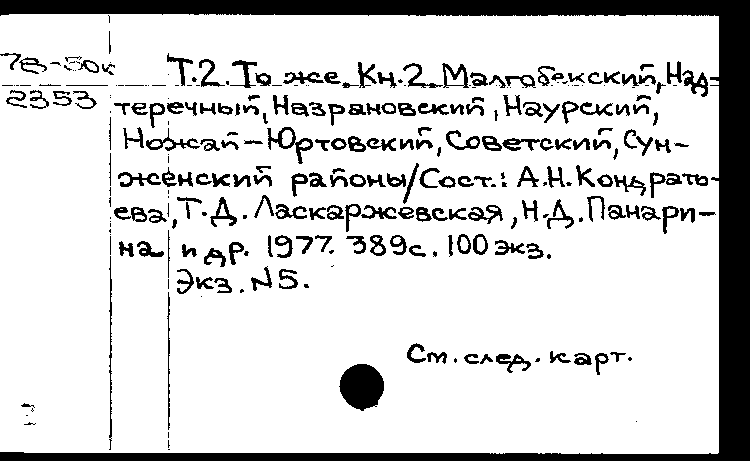 78-50к
2353
Т.2. То же. Кн.2. Малгобекский, Над-
теречный, Назрановский, Наурский,
Ножай-Юртовский, Советский, Сун-
женский районы/Сост.: А.Н. Кондрать-
ева, Т.Д. Ласкаржевская, Н.Д. Панари-
на и др. 1977. 389с. 100 экз.
Экз. N5.
См. след. карт.